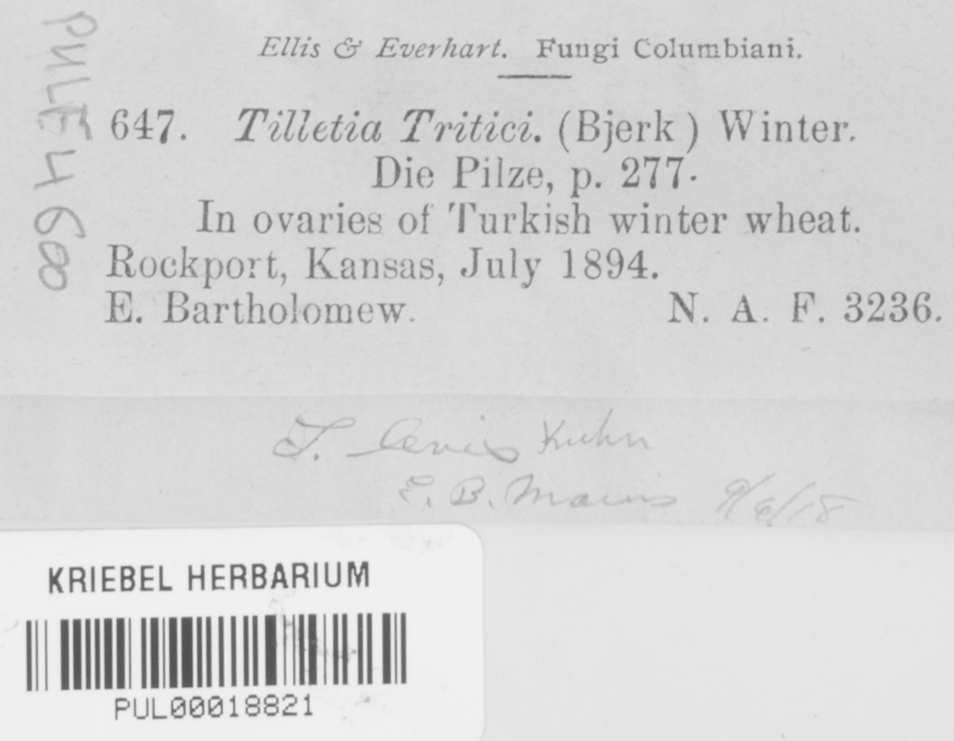 Ellis & Everhart. Fungi Columbiani.
647. Tilletia Tritici. (Bjerk) Winter.
Die Pilze, p. 277.
In ovaries of Turkish winter wheat.
Rockport, Kansas, July 1894.
E. Bartholomew. N. A. F. 3236.
PUL F 4688
T. levis Kuhn
E. B. Mains 9/6/18
KRIEBEL HERBARIUM
PUL00018821